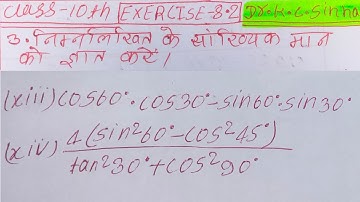 class-10th EXERCISE-8.2 Dr.K.C.Sinha
3. निम्नलिखित के सांख्यिक मान
को ज्ञात करें।
(xiii) cos60°·cos30°-sin60°·sin30°
(xiv) 4(sin²60°-cos²45°)
tan²30°+cos²90°